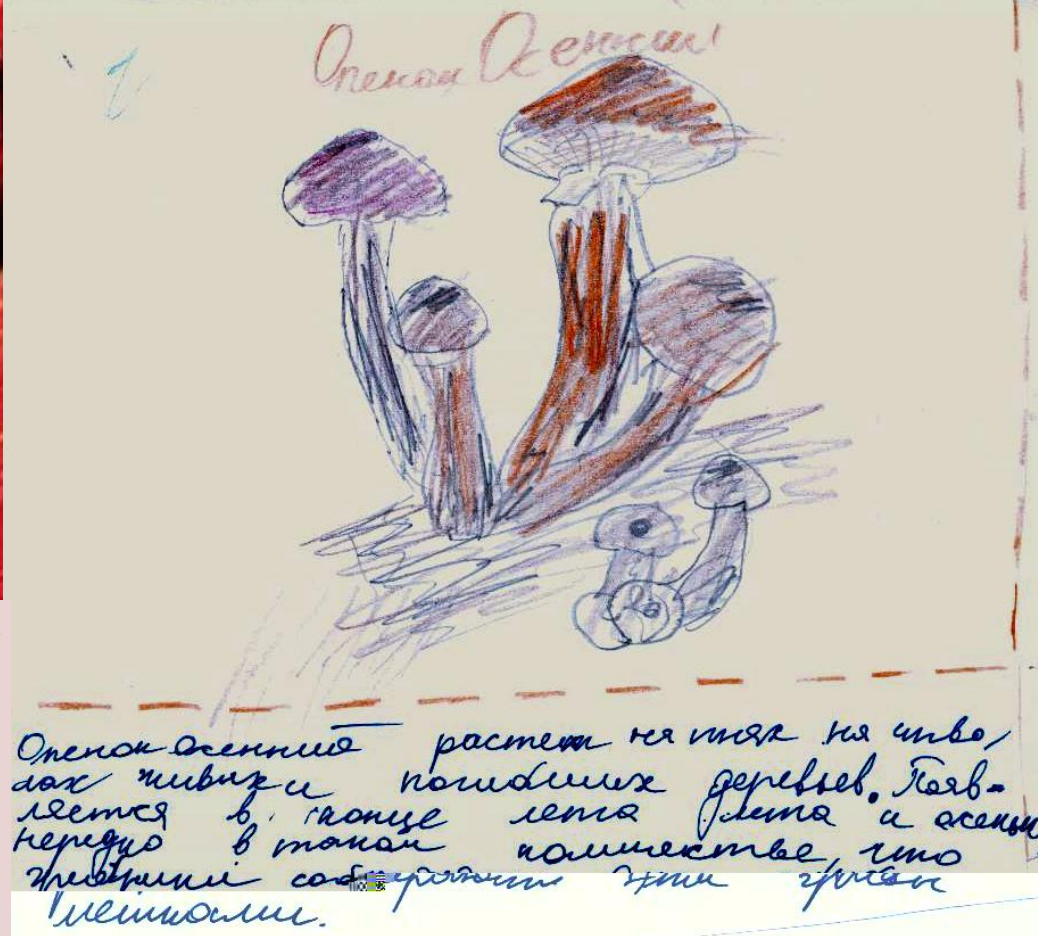 Опенок Осенний
Опенок осенний растет на пнях на ство
лах живых и погибших деревьев. Появ-
ляется в конце лета лета и осенью
нередко в таком количестве, что
грибники собирают эти грибы
мешками.